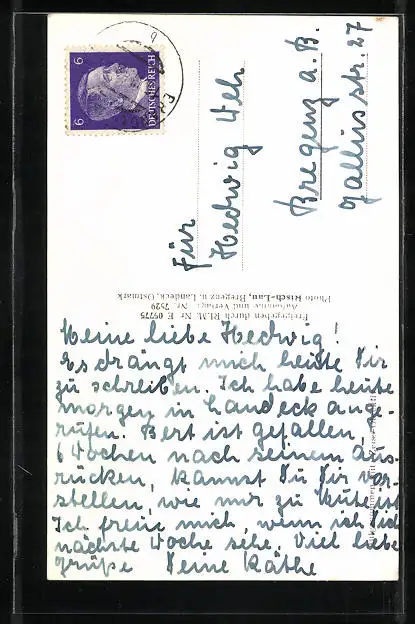 Für
Hedwig Ueh
Bregenz a.B.
Gallusstr. 27
6 6
DEUTSCHES REICH
Freigegeben durch RLM. Nr. E 05775
Aufnahme und Verlag: Nr. 7529
Photo Risch-Lau, Bregenz u. Landeck, Ostmark
Meine liebe Hedwig!
Es drängt mich heute Dir
zu schreiben. Ich habe heute
morgen in Landeck ange-
rufen. Bert ist gefallen,
6 Wochen nach seinem Aus-
rücken, kannst Du Dir vor-
stellen, wie mir zu Mute ist
Ich freue mich, wenn ich Dich
nächste Woche sehe. Viel liebe
Grüße Deine Käthe